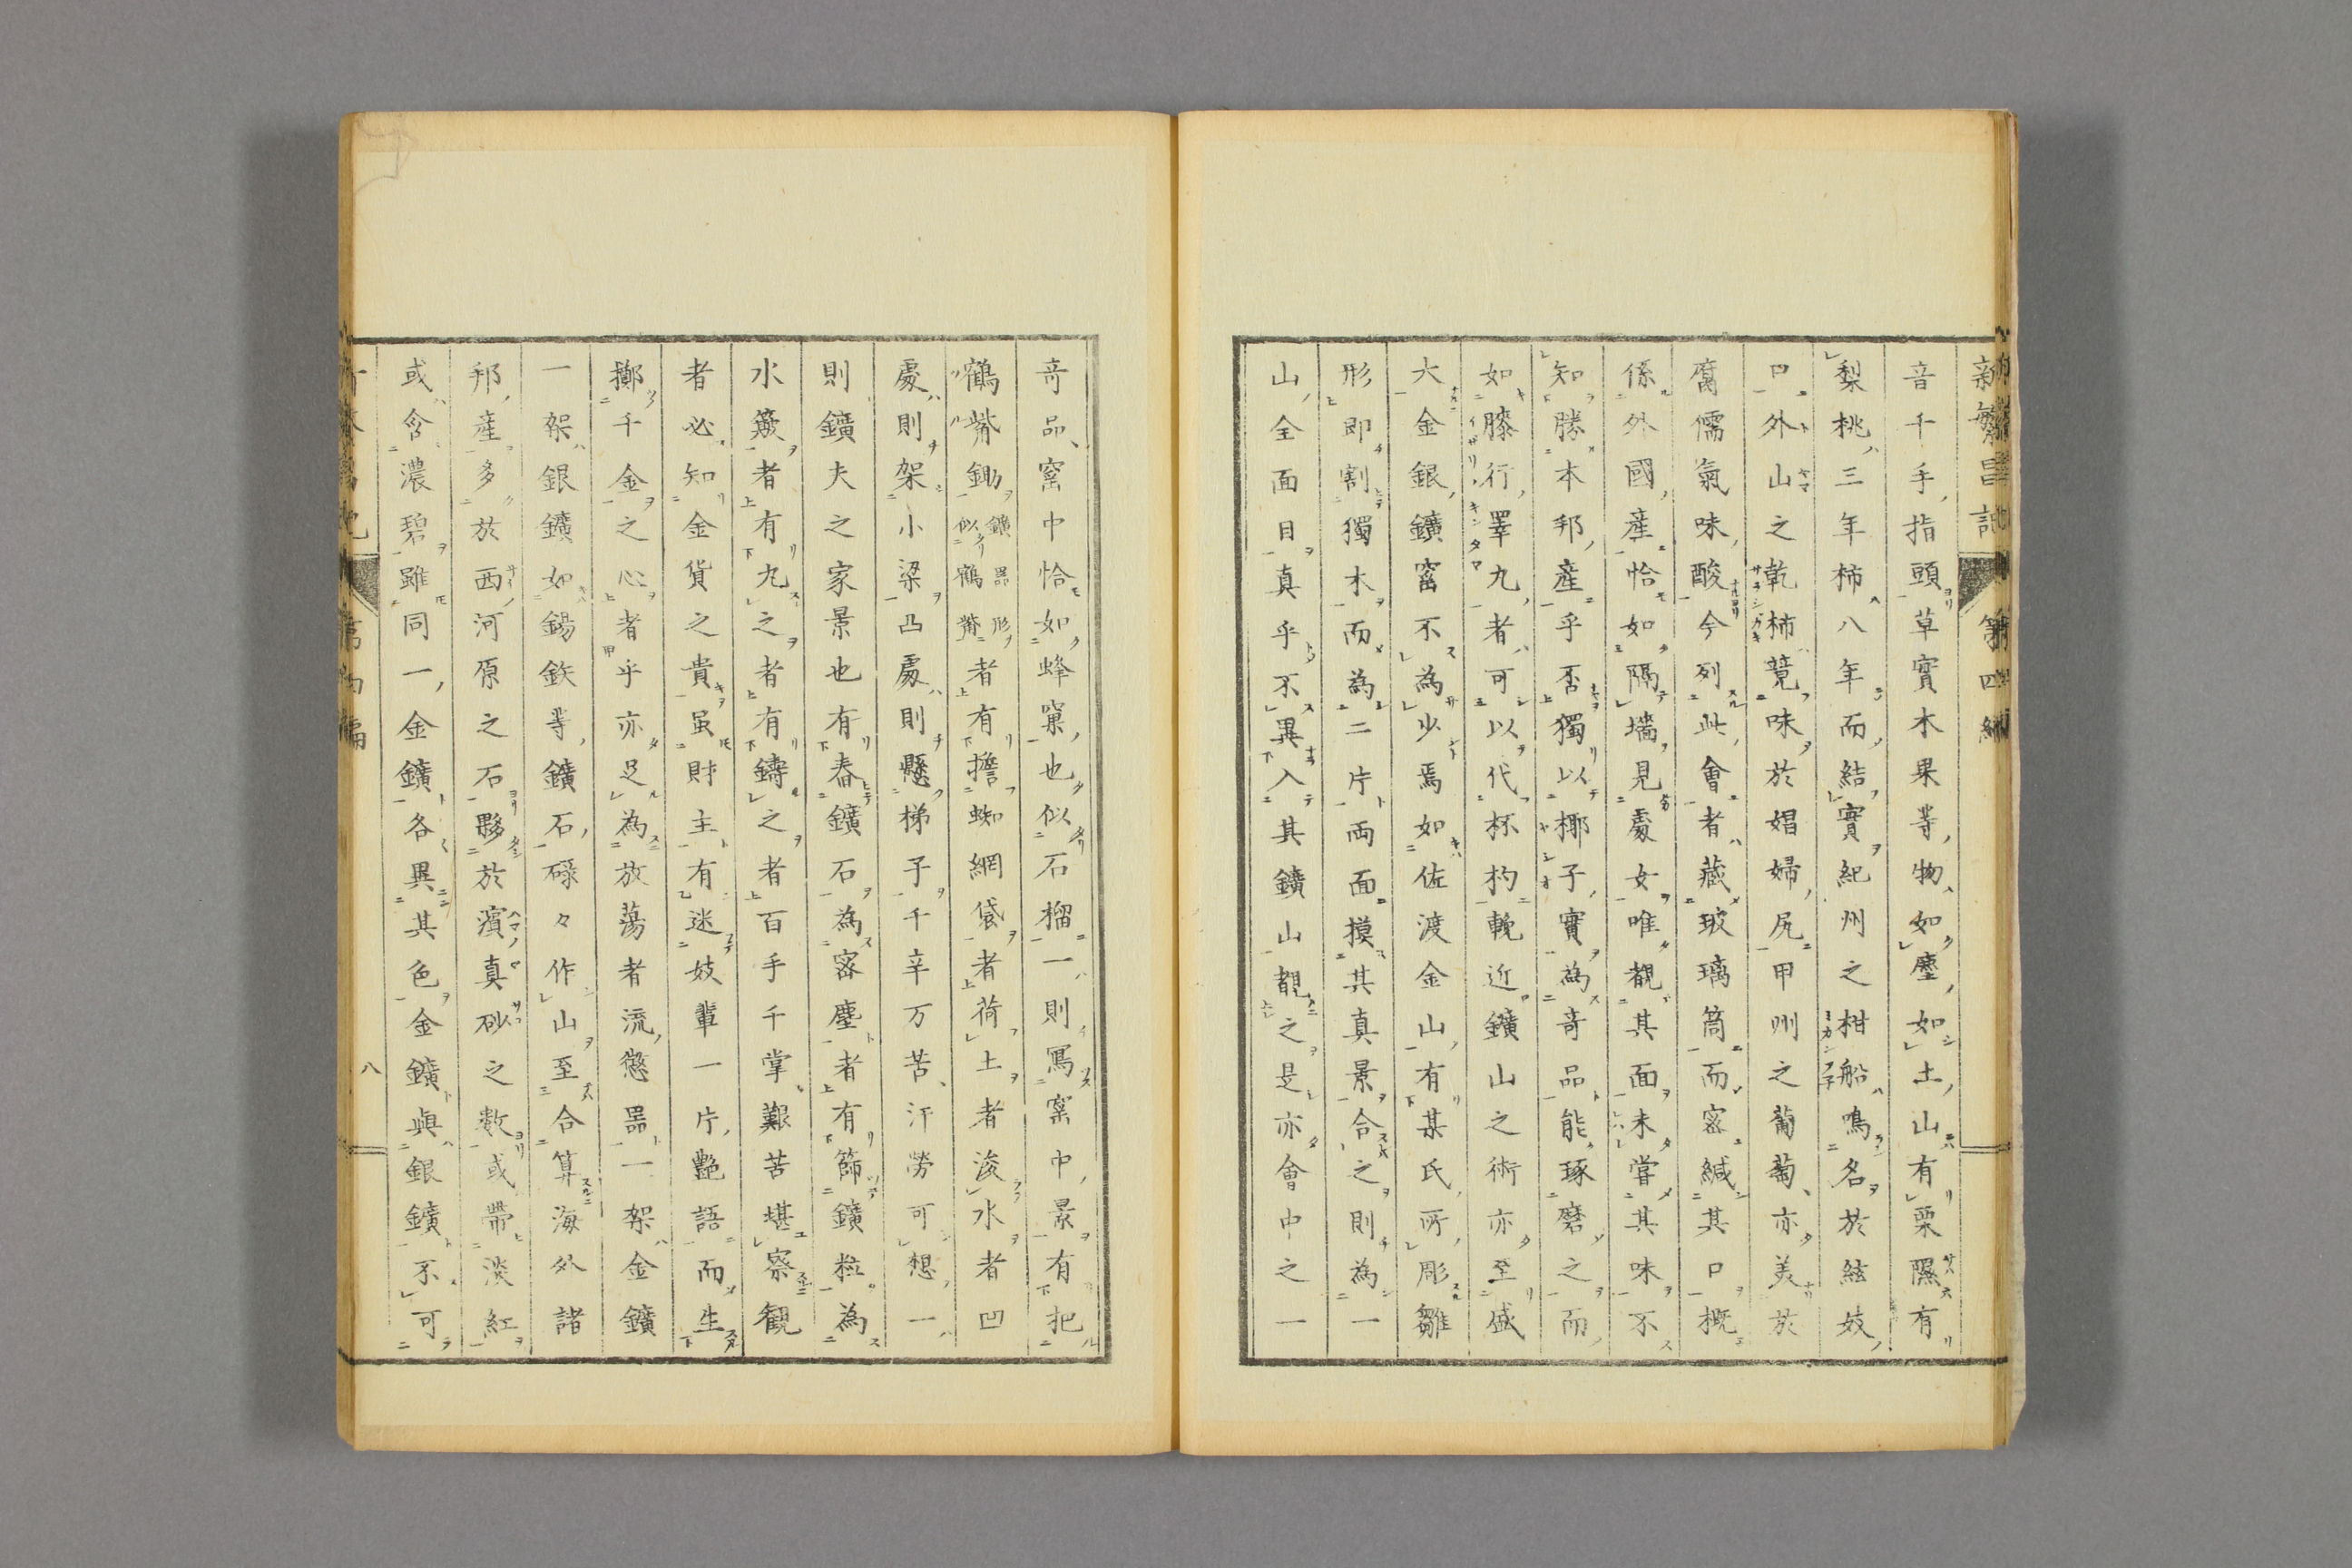 新繁昌記 第四編
音千手指頭草實木果等物如塵如土山有栗隰有
梨桃三年柿八年而結實紀州之柑船鳴名於絃妓
口外山之乾柿蕘味於娼婦尻甲州之葡萄亦美於
腐儒氣味酸今列此會者藏玻璃筒而密緘其口概
係外國產恰如隔墻見處女唯覩其面未嘗其味不
知勝本邦產乎否獨以椰子實為奇品能琢磨之而
如膝行睾丸者可以代杯杓輓近鑛山之術亦至盛
大金銀鑛窟不為少焉如佐渡金山有某氏所彫雛
形即割獨木而為二片両面摸其真景合之則為一
山全面目真乎不異入其鑛山覩之是亦會中之一
奇品窯中恰如蜂窠也似石榴一則寫窯中景有把
鶴觜鋤鑛器形似鶴觜者有擔蜘網袋者荷土者浚水者凹
處則架小梁凸處則懸梯子千辛万苦汗勞可想一
則鑛夫之家景也有舂鑛石為密塵者有篩鑛粒為
水簸者有丸之者有鑄之者百手千掌艱苦堪察観
者必知金貨之貴虽財主有迷妓輩一片艶語而生
擲千金之心者乎亦足為放蕩者流懲器一架金鑛
一架銀鑛如錫鉄等鑛石碌々作山至合算海外諸
邦產多於西河原之石夥於濱真砂之数或帶淡紅
或含濃碧雖同一金鑛各異其色金鑛與銀鑛不可
八